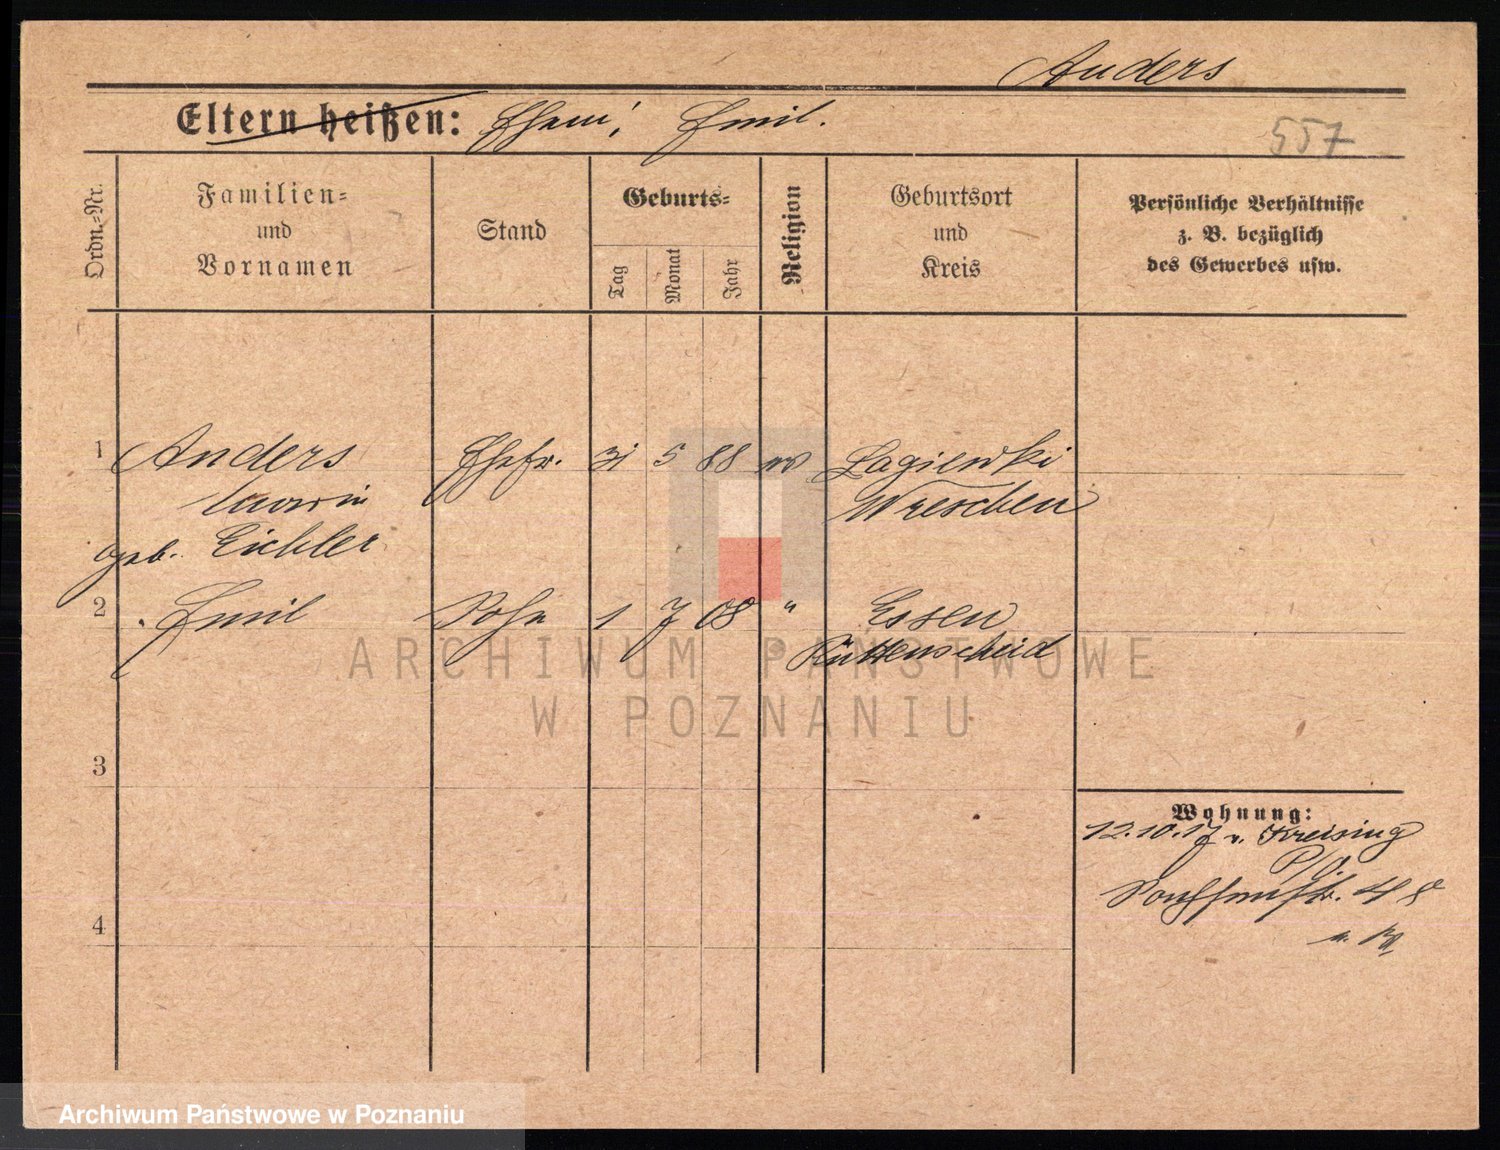 Anders
Eltern heißen: Ehem. Emil.
557
Ordn.-Nr.
Familien-
und
Vornamen
Stand
Geburts-
Tag
Monat
Jahr
Religion
Geburtsort
und
Kreis
Persönliche Verhältnisse
z. B. bezüglich
des Gewerbes usw.
1 Anders Ehefr. 31 5 88 Lagiewki
Wreschen
geb. Eichler
2 Emil Sohn 1 7 08 " Essen
Rüttenscheid
3
4
Wohnung:
12.10.17 v. Kreising
48
ARCHIWUM PAŃSTWOWE
W POZNANIU
Archiwum Państwowe w Poznaniu